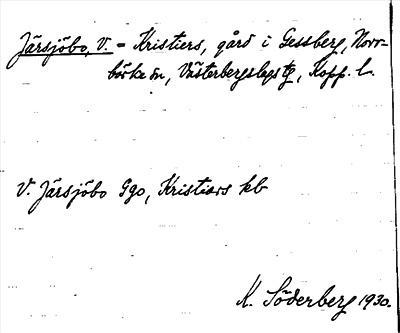 Järsjöbo, V. = Kristiers, gård i Gessberg, Norr-
bärke sn, Västerbergslags tg, Kopp. l.
V. Järsjöbo Ggo, Kristiers kb
K. Söderberg 1930.